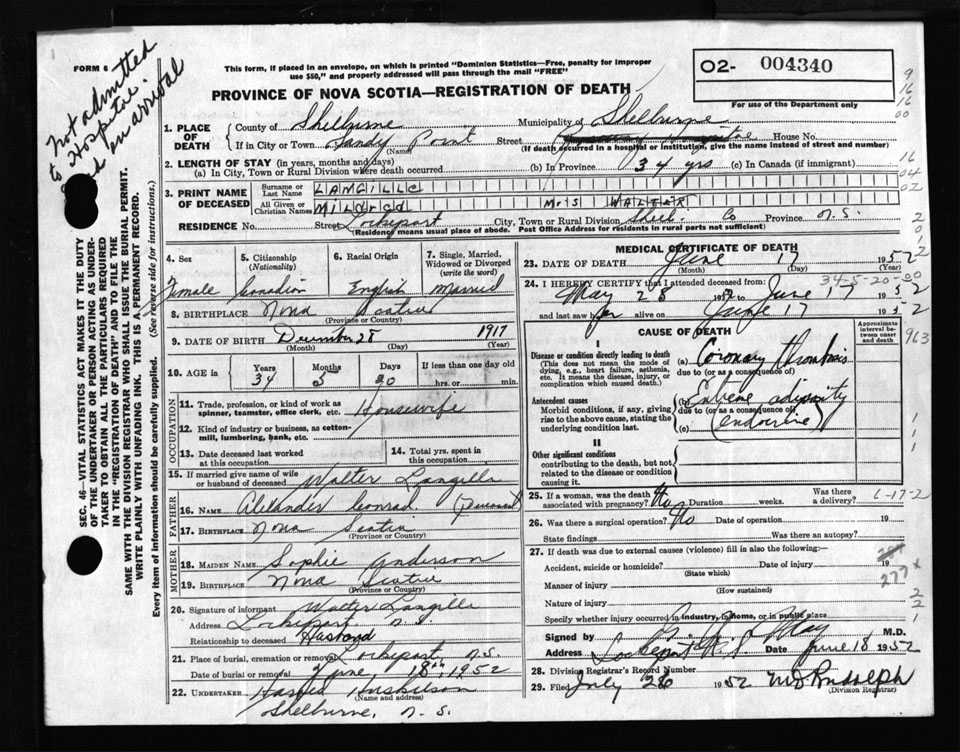 FORM 6
Not admitted
to Hospital
Dead on arrival
This form, if placed in an envelope, on which is printed "Dominion Statistics—Free, penalty for improper
use $50," and properly addressed will pass through the mail "FREE"
PROVINCE OF NOVA SCOTIA—REGISTRATION OF DEATH
02- 004340
For use of the Department only
9
16
16
00
16
04
02
2
0
1
2
1. PLACE OF DEATH
County of Shelburne Municipality of Shelburne
If in City or Town Sandy Point Street House No.
(Name) (If death occurred in a hospital or institution, give the name instead of street and number)
2. LENGTH OF STAY (in years, months and days)
(a) In City, Town or Rural Division where death occurred (b) In Province 34 yrs (c) In Canada (if immigrant)
3. PRINT NAME OF DECEASED
Surname or Last Name LANGILLE
All Given or Christian Names Mildred Mrs WALTER
RESIDENCE No. Street Lockeport City, Town or Rural Division Shel. Co Province N.S.
(Residence means usual place of abode. Post Office Address for residents in rural parts not sufficient)
SEC. 46—VITAL STATISTICS ACT MAKES IT THE DUTY
OF THE UNDERTAKER OR PERSON ACTING AS UNDER-
TAKER TO OBTAIN ALL THE PARTICULARS REQUIRED
IN THE "REGISTRATION OF DEATH" AND TO FILE THE
SAME WITH THE DIVISION REGISTRAR WHO SHALL ISSUE THE BURIAL PERMIT.
WRITE PLAINLY WITH UNFADING INK. THIS IS A PERMANENT RECORD.
Every item of information should be carefully supplied. (See reverse side for instructions.)
4. Sex
Female
5. Citizenship (Nationality)
Canadian
6. Racial Origin
English
7. Single, Married, Widowed or Divorced (write the word)
Married
8. BIRTHPLACE Nova Scotia
(Province or Country)
9. DATE OF BIRTH December 28 1917
(Month) (Day) (Year)
10. AGE in Years 34 Months 5 Days 20 If less than one day old
hrs. or min.
OCCUPATION
11. Trade, profession, or kind of work as
spinner, teamster, office clerk, etc. Housewife
12. Kind of industry or business, as cotton-
mill, lumbering, bank, etc.
13. Date deceased last worked
at this occupation
14. Total yrs. spent in
this occupation
15. If married give name of wife
or husband of deceased Walter Langille
FATHER
16. NAME Alexander Conrad (Deceased)
17. BIRTHPLACE Nova Scotia
(Province or Country)
MOTHER
18. MAIDEN NAME Sophie Anderson
19. BIRTHPLACE Nova Scotia
(Province or Country)
20. Signature of informant Walter Langille
Address Lockeport N.S.
Relationship to deceased Husband
21. Place of burial, cremation or removal Lockeport, N.S.
Date of burial or removal June, 18th, 1952
22. UNDERTAKER Huskilson
(Name and address)
Shelburne, N.S.
MEDICAL CERTIFICATE OF DEATH
23. DATE OF DEATH June 17 1952
(Month) (Day) (Year)
34-5-20-00
24. I HEREBY CERTIFY that I attended deceased from:
May 28 1952 to June 17 1952
and last saw her alive on June 17 1952
CAUSE OF DEATH
Approximate interval between onset and death
963
I
Disease or condition directly leading to death
(This does not mean the mode of
dying, e.g., heart failure, asthenia,
etc. It means the disease, injury, or
complication which caused death.)
(a) Coronary thrombosis
due to (or as a consequence of)
Antecedent causes
Morbid conditions, if any, giving
rise to the above cause, stating the
underlying condition last.
(b) Extreme adiposity
due to (or as a consequence of)
(c) (endocrine)
II
Other significant conditions
contributing to the death, but not
related to the disease or condition
causing it.
1
1
1
25. If a woman, was the death
associated with pregnancy? No Duration weeks. Was there
a delivery?
6-17-2
26. Was there a surgical operation? No Date of operation 19
State findings Was there an autopsy?
27. If death was due to external causes (violence) fill in also the following:—
Accident, suicide or homicide? Date of injury 19
(State which)
277 x
Manner of injury
(How sustained)
Nature of injury
2
2
1
Specify whether injury occurred in industry, in home, or in public place
Signed by May M.D.
Address Lockeport N.S. Date June 18 1952
28. Division Registrar's Record Number
29. Filed July 28 1952 M D Rudolph
(Division Registrar)